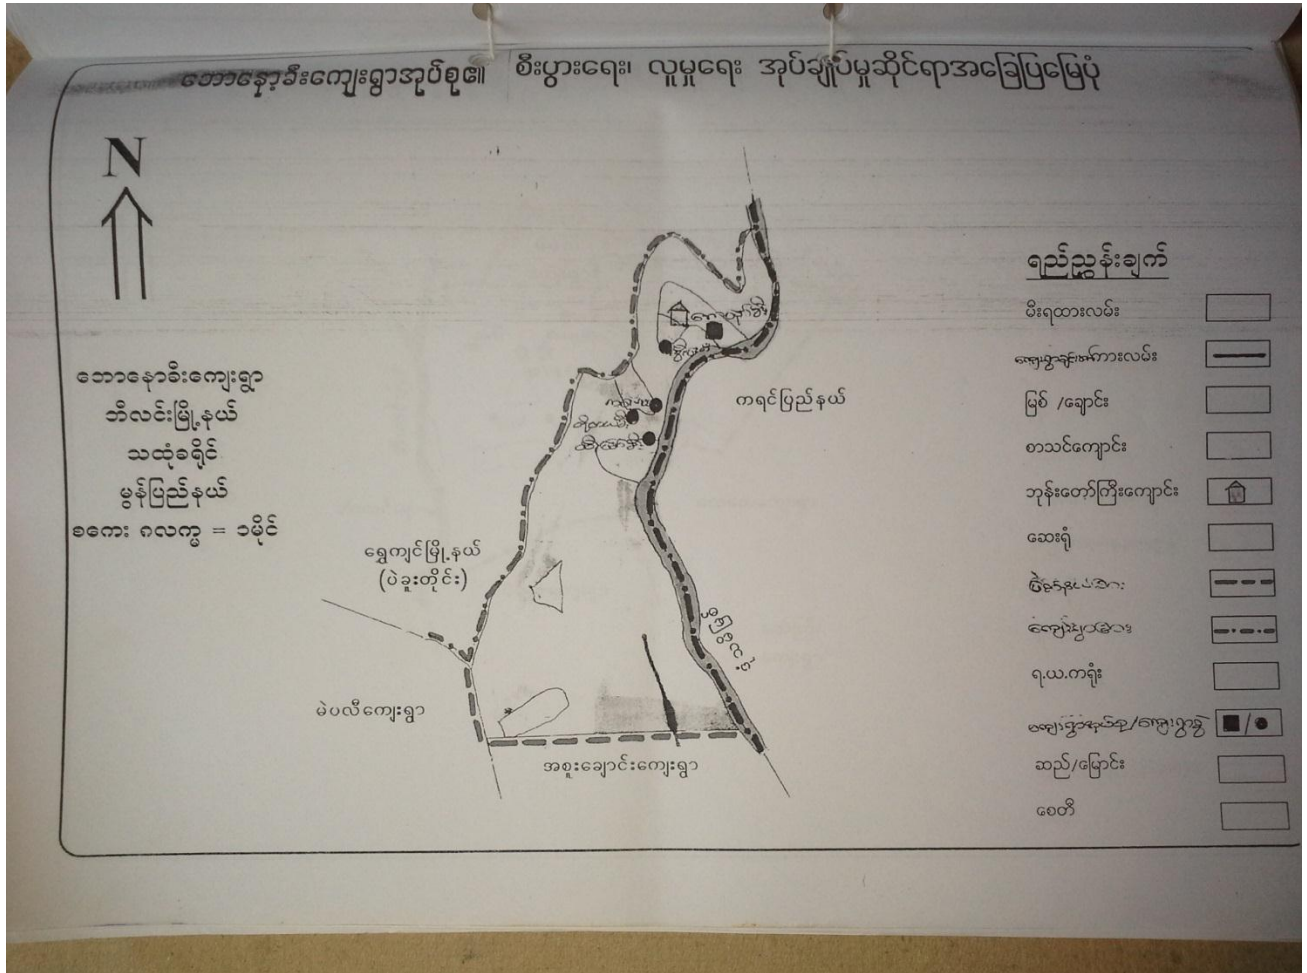 ဘောနော့ခီးကျေးရွာအုပ်စု၏ စီးပွားရေး၊ လူမှုရေး အုပ်ချုပ်မှုဆိုင်ရာအခြေပြမြေပုံ
N
ဘောနောခီးကျေးရွာ
ဘီလင်းမြို့နယ်
သထုံခရိုင်
မွန်ပြည်နယ်
စကေး ၈လက္မ = ၁မိုင်
ကရင်ပြည်နယ်
ရွှေကျင်မြို့နယ်
(ပဲခူးတိုင်း)
မဲပလီကျေးရွာ
အစူးချောင်းကျေးရွာ
ရည်ညွှန်းချက်
မီးရထားလမ်း
မြစ် /ချောင်း
စာသင်ကျောင်း
ဘုန်းတော်ကြီးကျောင်း
ဆေးရုံ
ရ.ယ.ကရုံး
ကျေးရွာအုပ်စု/ကျေးရွာခွဲ
/
ဆည်/မြောင်း
စေတီ